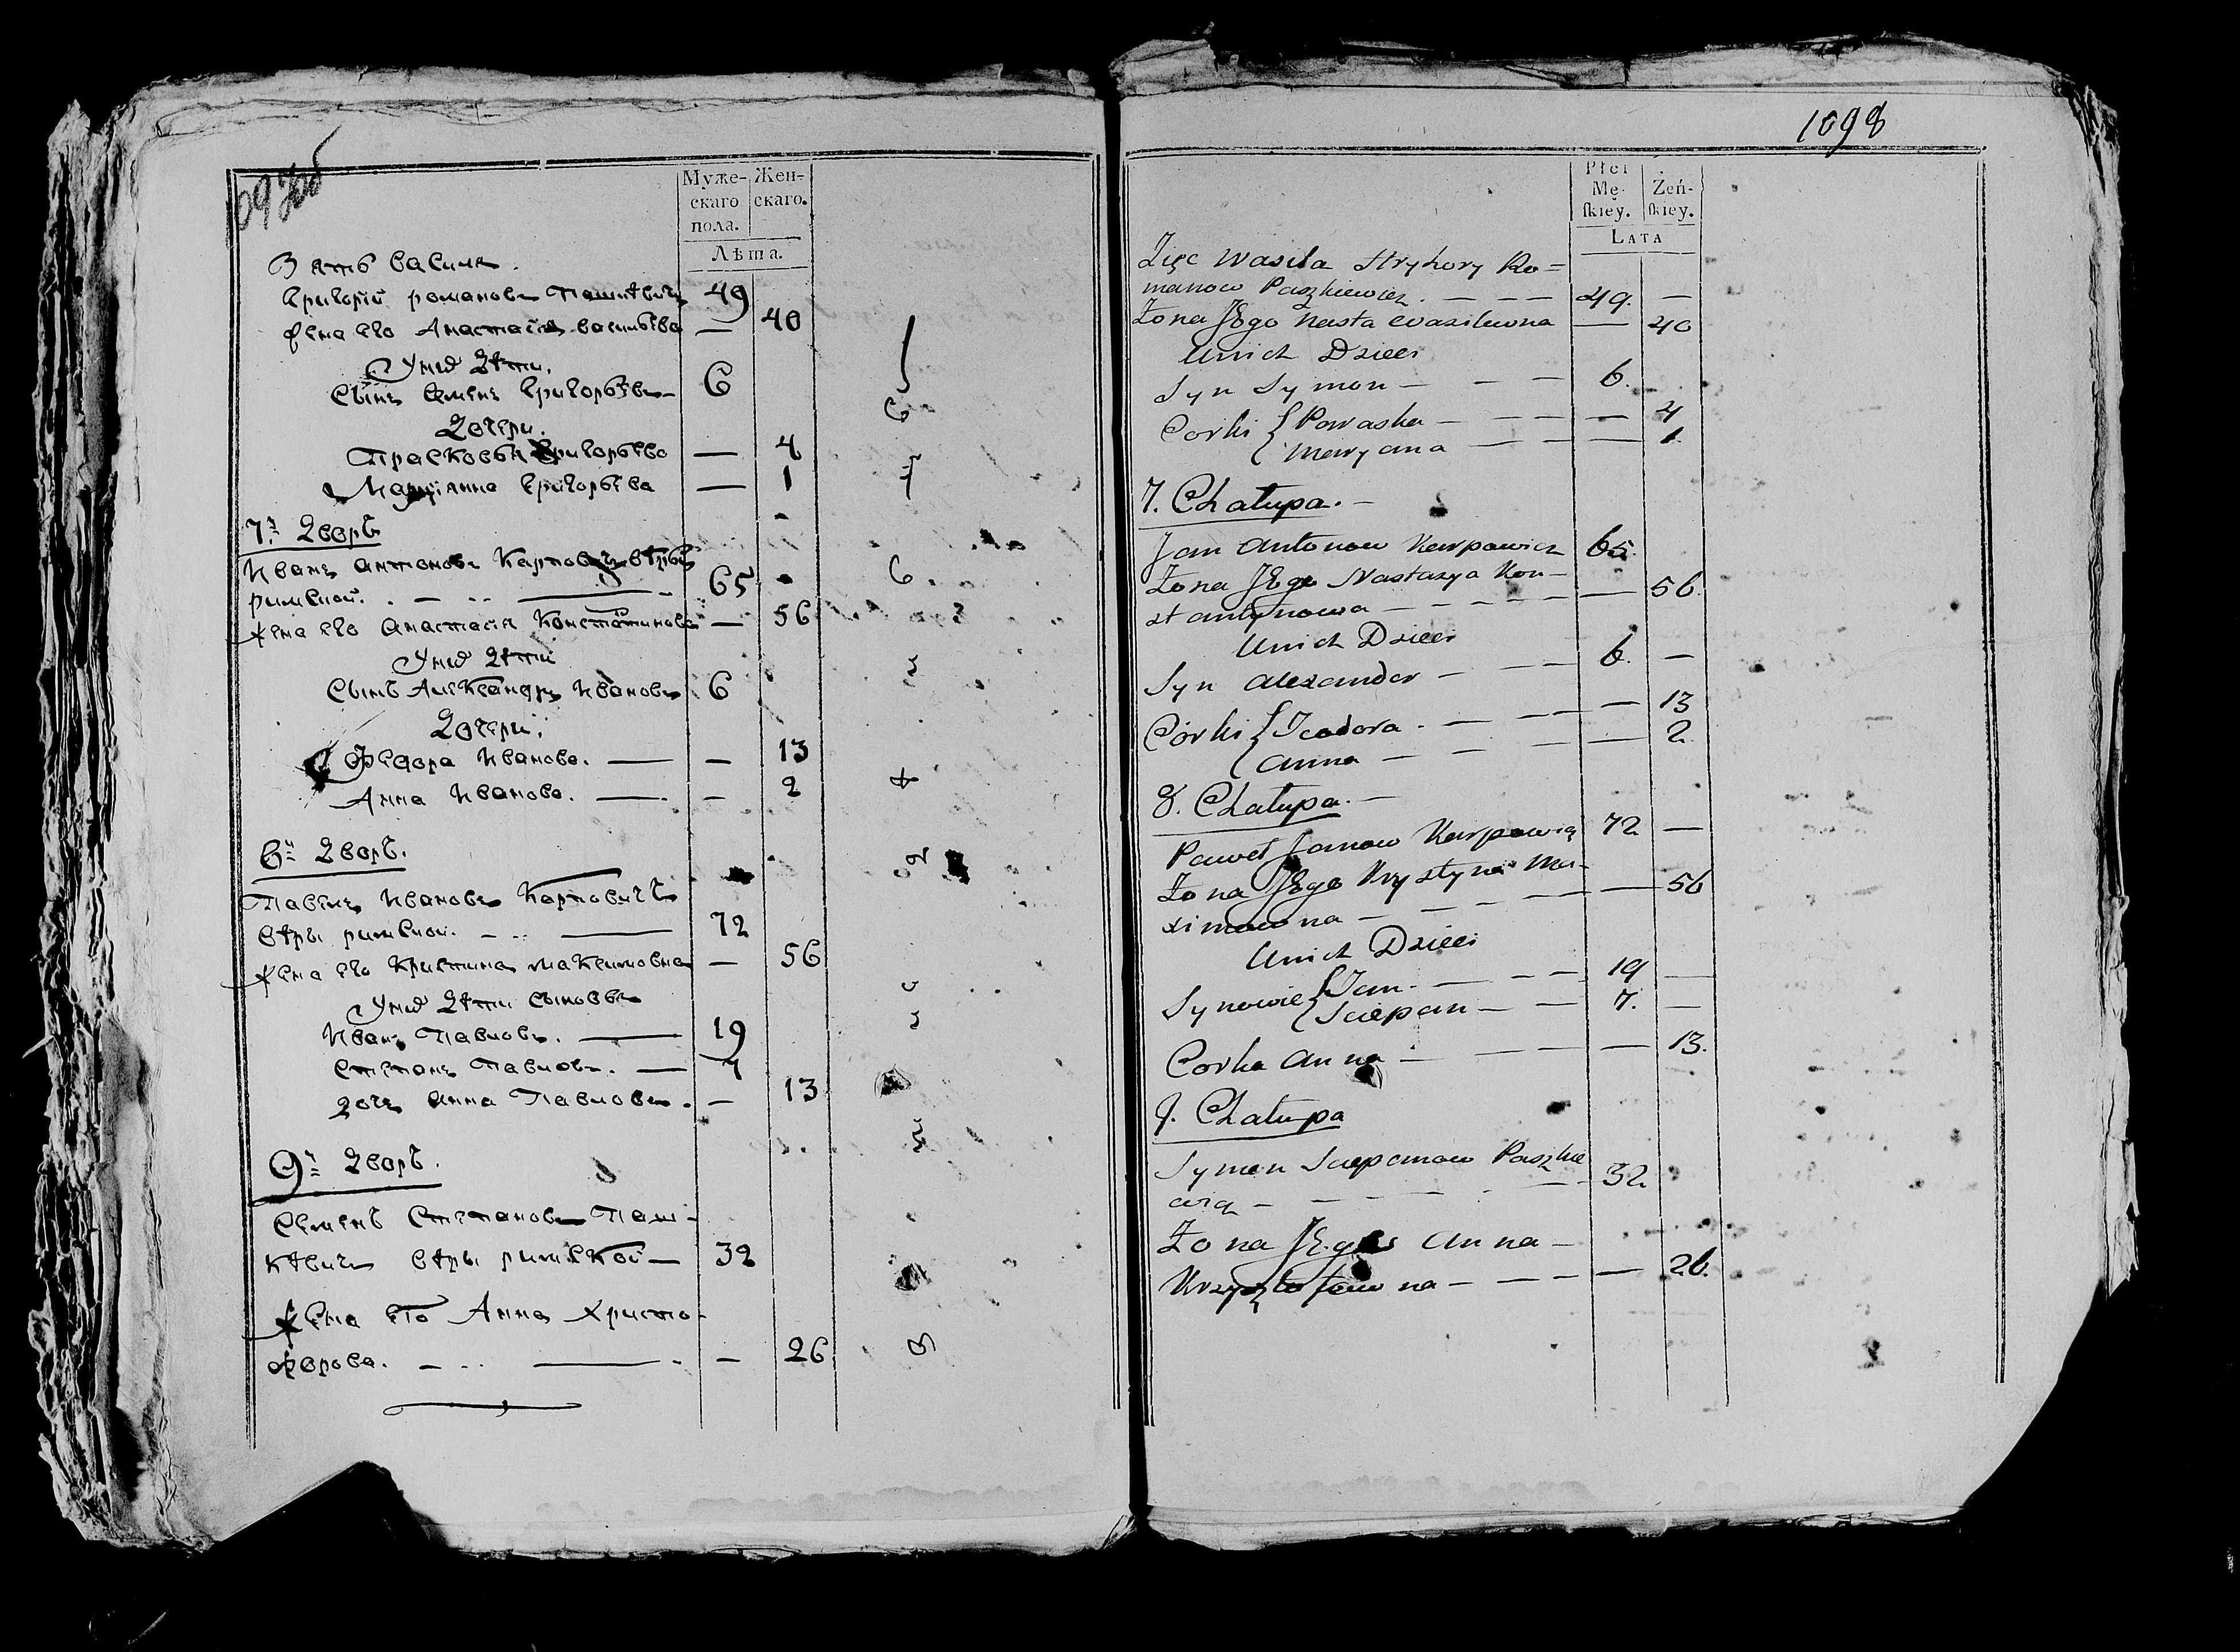 1097об
Муже-
скаго
пола.
Жен-
скаго.
Лѣта.
Зять василя.
Григорій романовъ Пашкѣвичъ 49
Жена его Анастасія васильева — 40
У нихъ дѣти.
Сынъ Семенъ Григорьевъ — 6
Дочери.
Прасковья Григорьева — 4
Маріянна Григорьева — 1
7й Дворъ
Иванъ Антоновъ Карповичъ вѣры
римской. — 65
Жена его Анастасія Константинова — 56
У нихъ дѣти
Сынъ Александръ Ивановъ 6
Дочери:
Феодора Иванова. — — 13
Анна Иванова. — — 2
8й Дворъ.
Павелъ Ивановъ Карповичъ
вѣры римской. — 72
Жена его Кристина Максимовна — 56
У нихъ дѣти Сыновья
Иванъ Павловъ. — 19
Степанъ Павловъ. — 7
дочь Анна Павлова. — 13
9й Дворъ.
Семенъ Степановъ Паш-
кѣвичъ вѣры римской — 32
Жена его Анна Христо-
форова. — — 26
1098
Płci
Mę-
skiey.
Żeń-
skiey.
Lata
Zięc Wasila Hryhory Ro=
manow Paszkiewicz. — — — 49. —
Żona Jego Nasta Wasilewna — 40
Unich Dzieci
Syn Symon — — — 6.
Corki { Paraska — — — 4
{ Maryana — — 1
7. Chałupa. —
Jan Antonow Karpowicz 65.
Żona Jego Nastazya Kon-
stantynowa — — — — — 56.
Unich Dzieci
Syn Alexander — — — 6. —
Córki { Teodora. — — — — 13
{ Anna — — — — 2.
8. Chałupa. —
Paweł Janow Karpowicz 72 —
Żona Jego Krystyna Ma-
ximowna — — — — — 56
Unich Dzieci
Synowie { Jan. — — — 19 —
{ Sciepan — — 7. —
Corka Anna — — — — 13.
9. Chałupa
Symon Sciepanow Paszkie
wicz — — — — — 32.
Żona Jego Anna —
Krzysztofowna — — — — 26.